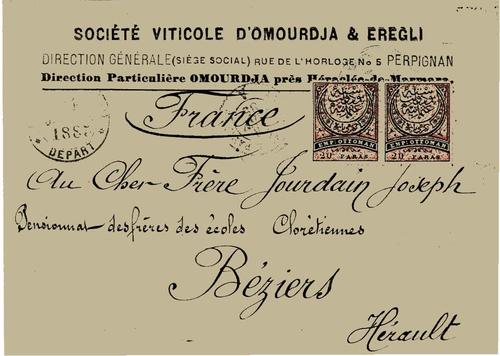 SOCIÉTÉ VITICOLE D'OMOURDJA & EREGLI
DIRECTION GÉNÉRALE (SIÈGE SOCIAL) RUE DE L'HORLOGE No 5 PERPIGNAN
Direction Particulière OMOURDJA près Héraclée-de-Marmara
France
188
DÉPART
EMP. OTTOMAN
20 PARAS
EMP. OTTOMAN
20 PARAS
Au Cher Frère Jourdain Joseph
Pensionnat des frères des écoles Chrétiennes
Béziers
Hérault